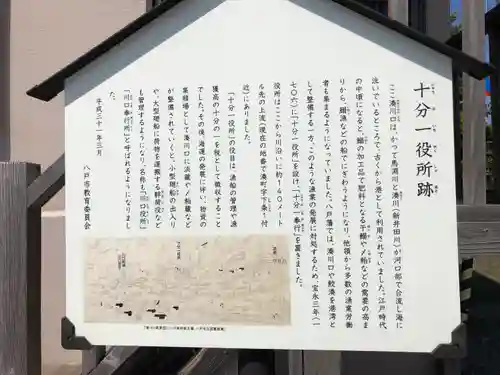 十分一役所跡
ここ湊川口は、かつて馬淵川と湊川(新井田川)が河口部で合流し海に
注いでいるところで、古くから港として利用されていました。江戸時代
の中頃になると、鰯の加工品で肥料となる干鰯や〆粕などの需要の高ま
りから、鰯漁などの船でにぎわうようになり、他領から多数の漁業労働
者も集まるようになっていました。八戸藩では、湊川口や鮫湊を港湾と
して整備する一方、このような漁業の発展に対処するため、宝永三年(一
七〇六)に「十分一役所」を設け「十分一奉行」を置きました。
役所はここから川沿いに約140メート
ル先の上流(現在の地番で湊町字下条1付
近)にありました。
「十分一役所」の役目は漁船の管理や漁
獲高の十分の一を税として徴収すること
でした。その後、海運の発展に伴い、物資の
集積場として湊川口に浜蔵や〆粕蔵など
が整備されていくと、小型廻船の出入り
や、大型船に荷物を運搬する艀荷役など
も管理するようになり、名称も「川口役所」
「川口奉行所」と呼ばれるようになりまし
た。
平成三十一年三月
八戸市教育委員会